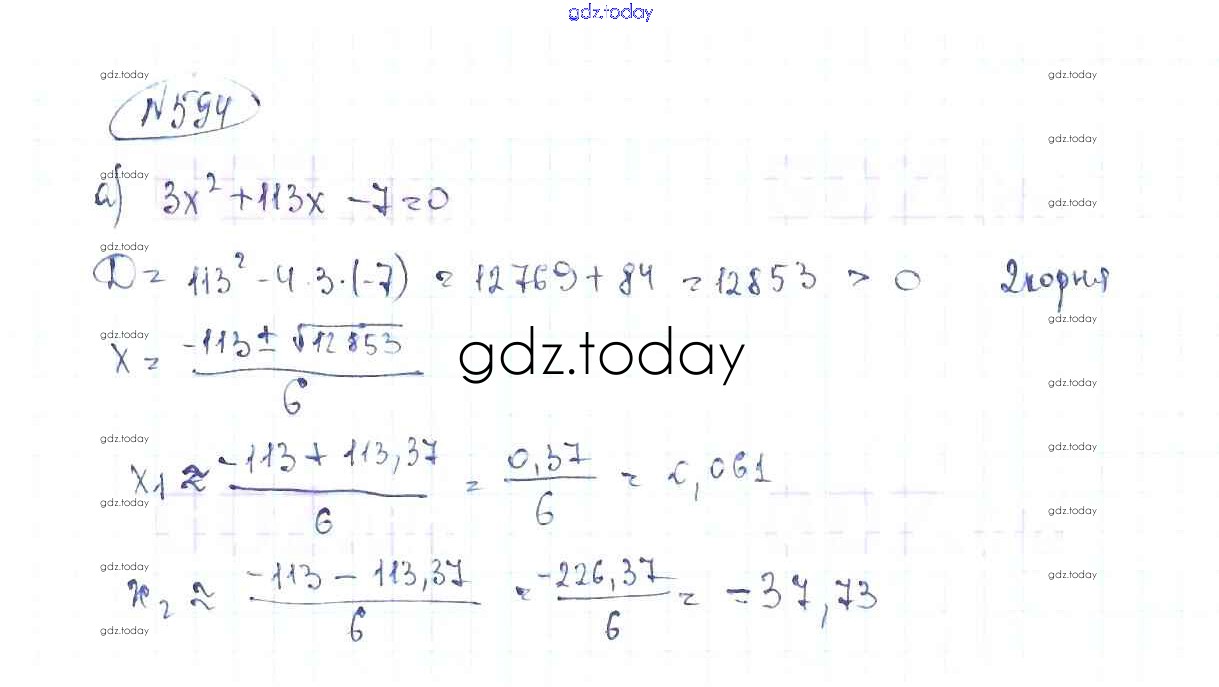 gdz.today
gdz.today gdz.today
N594
gdz.today
gdz.today
а) 3x² + 113x - 7 = 0
gdz.today
gdz.today
D = 113² - 4·3·(-7) = 12769 + 84 = 12853 > 0 2 корня
gdz.today
gdz.today
x = (-113 ± √12853)/6
gdz.today
gdz.today
gdz.today
gdz.today
x₁ ≈ (-113 + 113,37)/6 = 0,37/6 = 0,061
gdz.today
gdz.today
gdz.today
gdz.today
x₂ ≈ (-113 - 113,37)/6 = -226,37/6 = -37,73
gdz.today